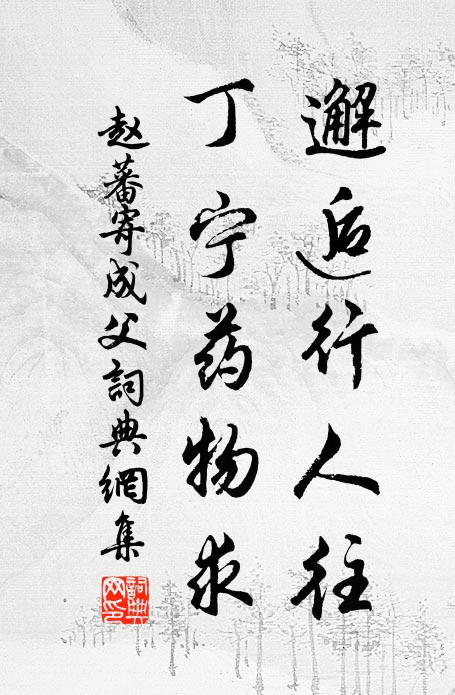 邂逅行人往
丁宁药物求
赵蕃寄成父詞典網集
詞典網印